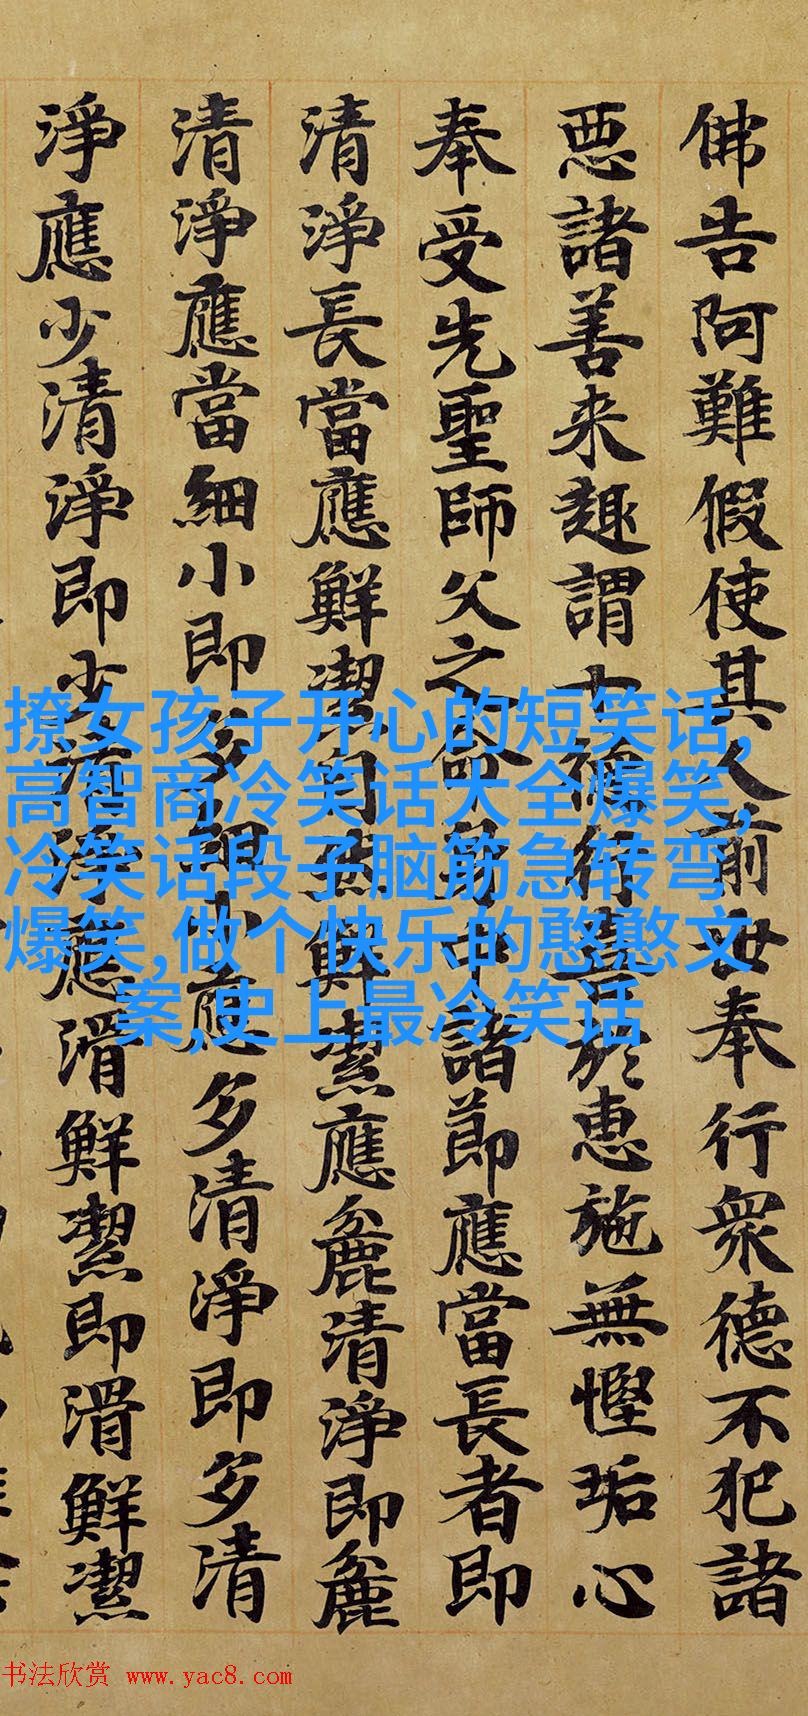 佛告阿難假使其人前世奉行眾德不犯諸
惡諸善来趣謂行於惠施無慳垢心
奉受先聖師父之命身中諸節應當長者即
清淨長當應鮮潔鮮潔應麁清淨即麁
清淨應當細小即多即小應多清淨即多清
淨應少清淨即少清淨應滑鮮潔即滑鮮潔
撩女孩子开心的短笑话,
高智商冷笑话大全爆笑,
冷笑话段子脑筋急转弯
爆笑,做个快乐的憨憨文
案,史上最冷笑话
书法欣赏 www.yac8.com